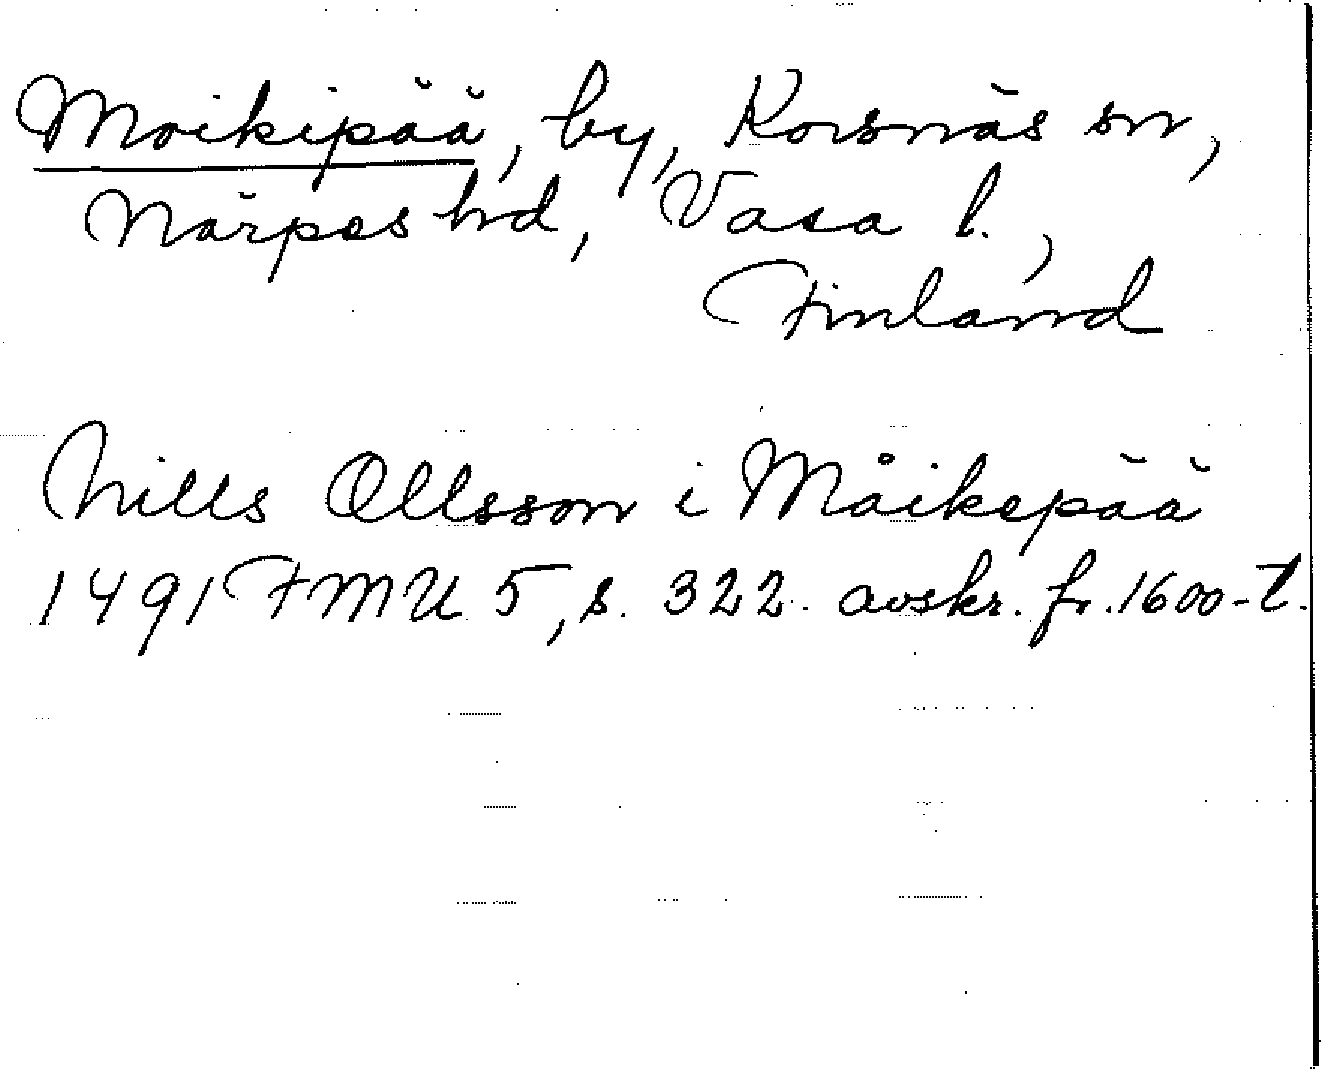 Moikipää, by, Korsnäs sn,
Närpes hd, Vasa l.,
Finland
Nills Ollsson i Måikepää
1491 FMU 5, s. 322 avskr. fr. 1600-t.